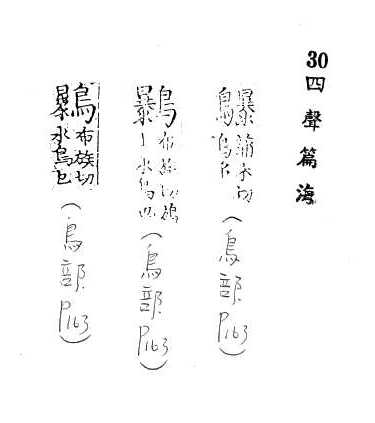 30四聲篇海
蒲木切鳥名(鳥部P163)
鸔布族切丨水鳥也(鳥部P163)
鸔布族切水鳥也(鳥部P163)